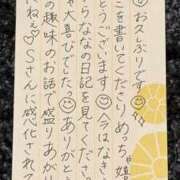 お久しぶりです
こを書いてくださりめっちゃ嬉
とうございます 今はなき
らななの日記を見てくだ
ゃ大喜びでした ありがと
の趣味のお話で盛りあが
にね♡Sさんに感化され